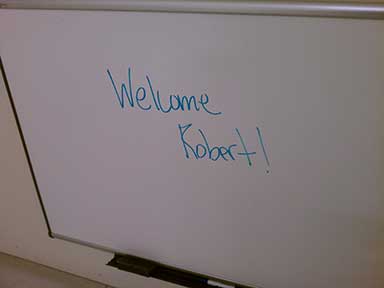 Welcome
Robert!